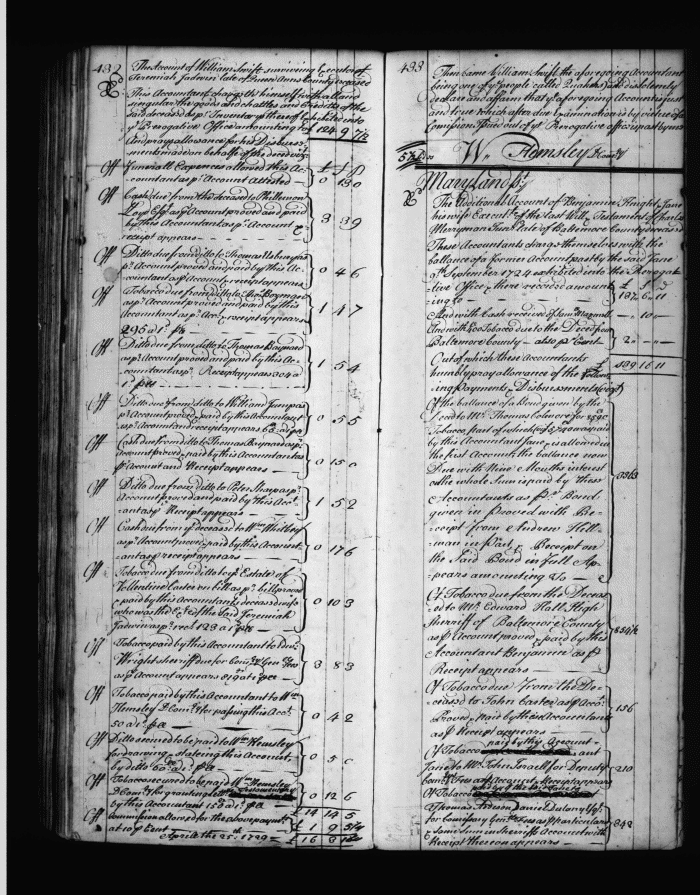 432
The Account of William Swift surviving Executor of
Jeremiah Jadwin late of Queen Anns County deceased
This Accountant chargeth himself with all and
singular the goods and chattles and Credits of the
said deceased as pr Inventory thereof exhibited into
ye Prerogative Office amounting to £ 124 9 7½
And prays allowance for his Disburse
ments made on behalf of the deced vizt
£ S P
Off Funerall Expences allowed this Ac
countant as pr Account attested — 0 13 0
Off Cash due from the deceased to Philemon
Loyd Esqr as pr Account proved and paid
by this Accountant as pr Account &
receipt appears — 3 3 9
Off Ditto due from ditto to Thomas
pr Account proved and paid by this Ac
countant as pr Account & receipt appears 0 4 6
Off Tobacco due from ditto to
as pr Account proved and paid by this
Accountant as pr Acct & receipt appears 1 4 7
295 a 1d pr
Off Ditto due from ditto to Thomas Baynard
as pr Account proved and paid by this Ac
countant as pr Receipt appears 304 a 1 5 4
1d pr
Off Ditto due from ditto to William
pr Account proved & paid by this Accountant 0 5 5
as pr Account and receipt appears
Off Cash due from ditto to Thomas Baynard as pr
Account proved & paid by this Accountant as
pr Account and Receipt appears — 0 15 0
Off Ditto due from ditto to Peter Sharp as pr
Account proved and paid by this Acct
antas pr Receipt appears — 1 5 2
Off Cash due from ye deceased to Wm Whitley
as pr Account proved & paid by this Account
ant as pr receipt appears — 0 17 6
Off Tobacco due from ditto to ye Estate of
Vallentine Carter on bill as pr bill proved
& paid by this Accountants deceased wife
who was the Ex of the said Jeremiah
Jadwin as pr rect 123 a 1d pr 0 10 3
Off Tobacco paid by this Accountant to
Wright sheriff due for Comrs & Gen Fees
as pr Account appears 896 a 1d pr 3 8 3
Off Tobacco paid by this Accountant to Wm
Hemsley D Comry for passing this Acct
50 a 1d pr — 0 4 2
Off Ditto secured to be paid to Wm Hemsley
for drawing & stating this Account
by ditto 60 a 1d pr 0 5 0
Off Tobacco secured to be paid Wm Hemsley
D Comry for
by this Accountant 150 a 1d pr 0 12 6
£ 14 14 5
Off Commission allowed for the above paymts
at 10 pr Cent £ 1 9 5¼
Aprill the 25th 1729 — £ 16 3
433
Then Came William Swift the aforegoing Accountant
being one of ye People called Quakers and did solemnly
declare and affirm that ye aforegoing Account is just
and true which after due Examination is by virtue of a
Commission Issued out of ye Prerogative office past by me
Wm Hemsley Comry
Maryland ss
The Additional Account of Benjamin Knight & Jane
his wife Executx of the last Will & Testament of Charles
Merryman Junr late of Baltimore County deceased
These Accountants charge themselves with the
ballance of a former Account past by the said Jane
9th September 1724 exhibited into the Prerogat
tive Office & there received amount £ S D
ing to — 187 6 11
And with Cash received of Saml Maxwell — 10 —
And with 600 Tobacco due to the Deced from
Baltimore County — also pr Cent 2 — —
Out of which these Accountants £ 189 16 11
humbly pray allowance of the follow
ing Payments & Disbursements (vizt)
Of the ballance of a bond given by the
Deced to Mr Thomas Colmore for
Tobacco part of which is paid
by this Accountant Jane is allowed in
the first Account the ballance now
Due with Nine Months interest
of the whole Sum is paid by these
Accountants as pr Bond
given in & proved with Re
ceipt from Andrew Hill
man in Part & Receipt on
the Said Bond in full Ap
pears amounting to —
Of Tobacco due from the Deceas
ed to Mr Edward Hall High
Sheriff of Baltimore County
as pr Account proved & paid by this
Accountant Benjamin as pr
Receipt appears — 854½
Of Tobacco due from the De
ceased to John Easter as pr Acct
Proved & paid by these Accountants
as pr Receipt appears 156
Of Tobacco paid by this Account ant
Jane to Mr John for Deputy
Comrs Fees as pr Account & Receipt appears 210
Of Tobacco
Daniel Dulany Esqr
for Comissary Genls Fees as pr particulars
& same sum in Sheriffs Account with
Receipt thereon appears — 342